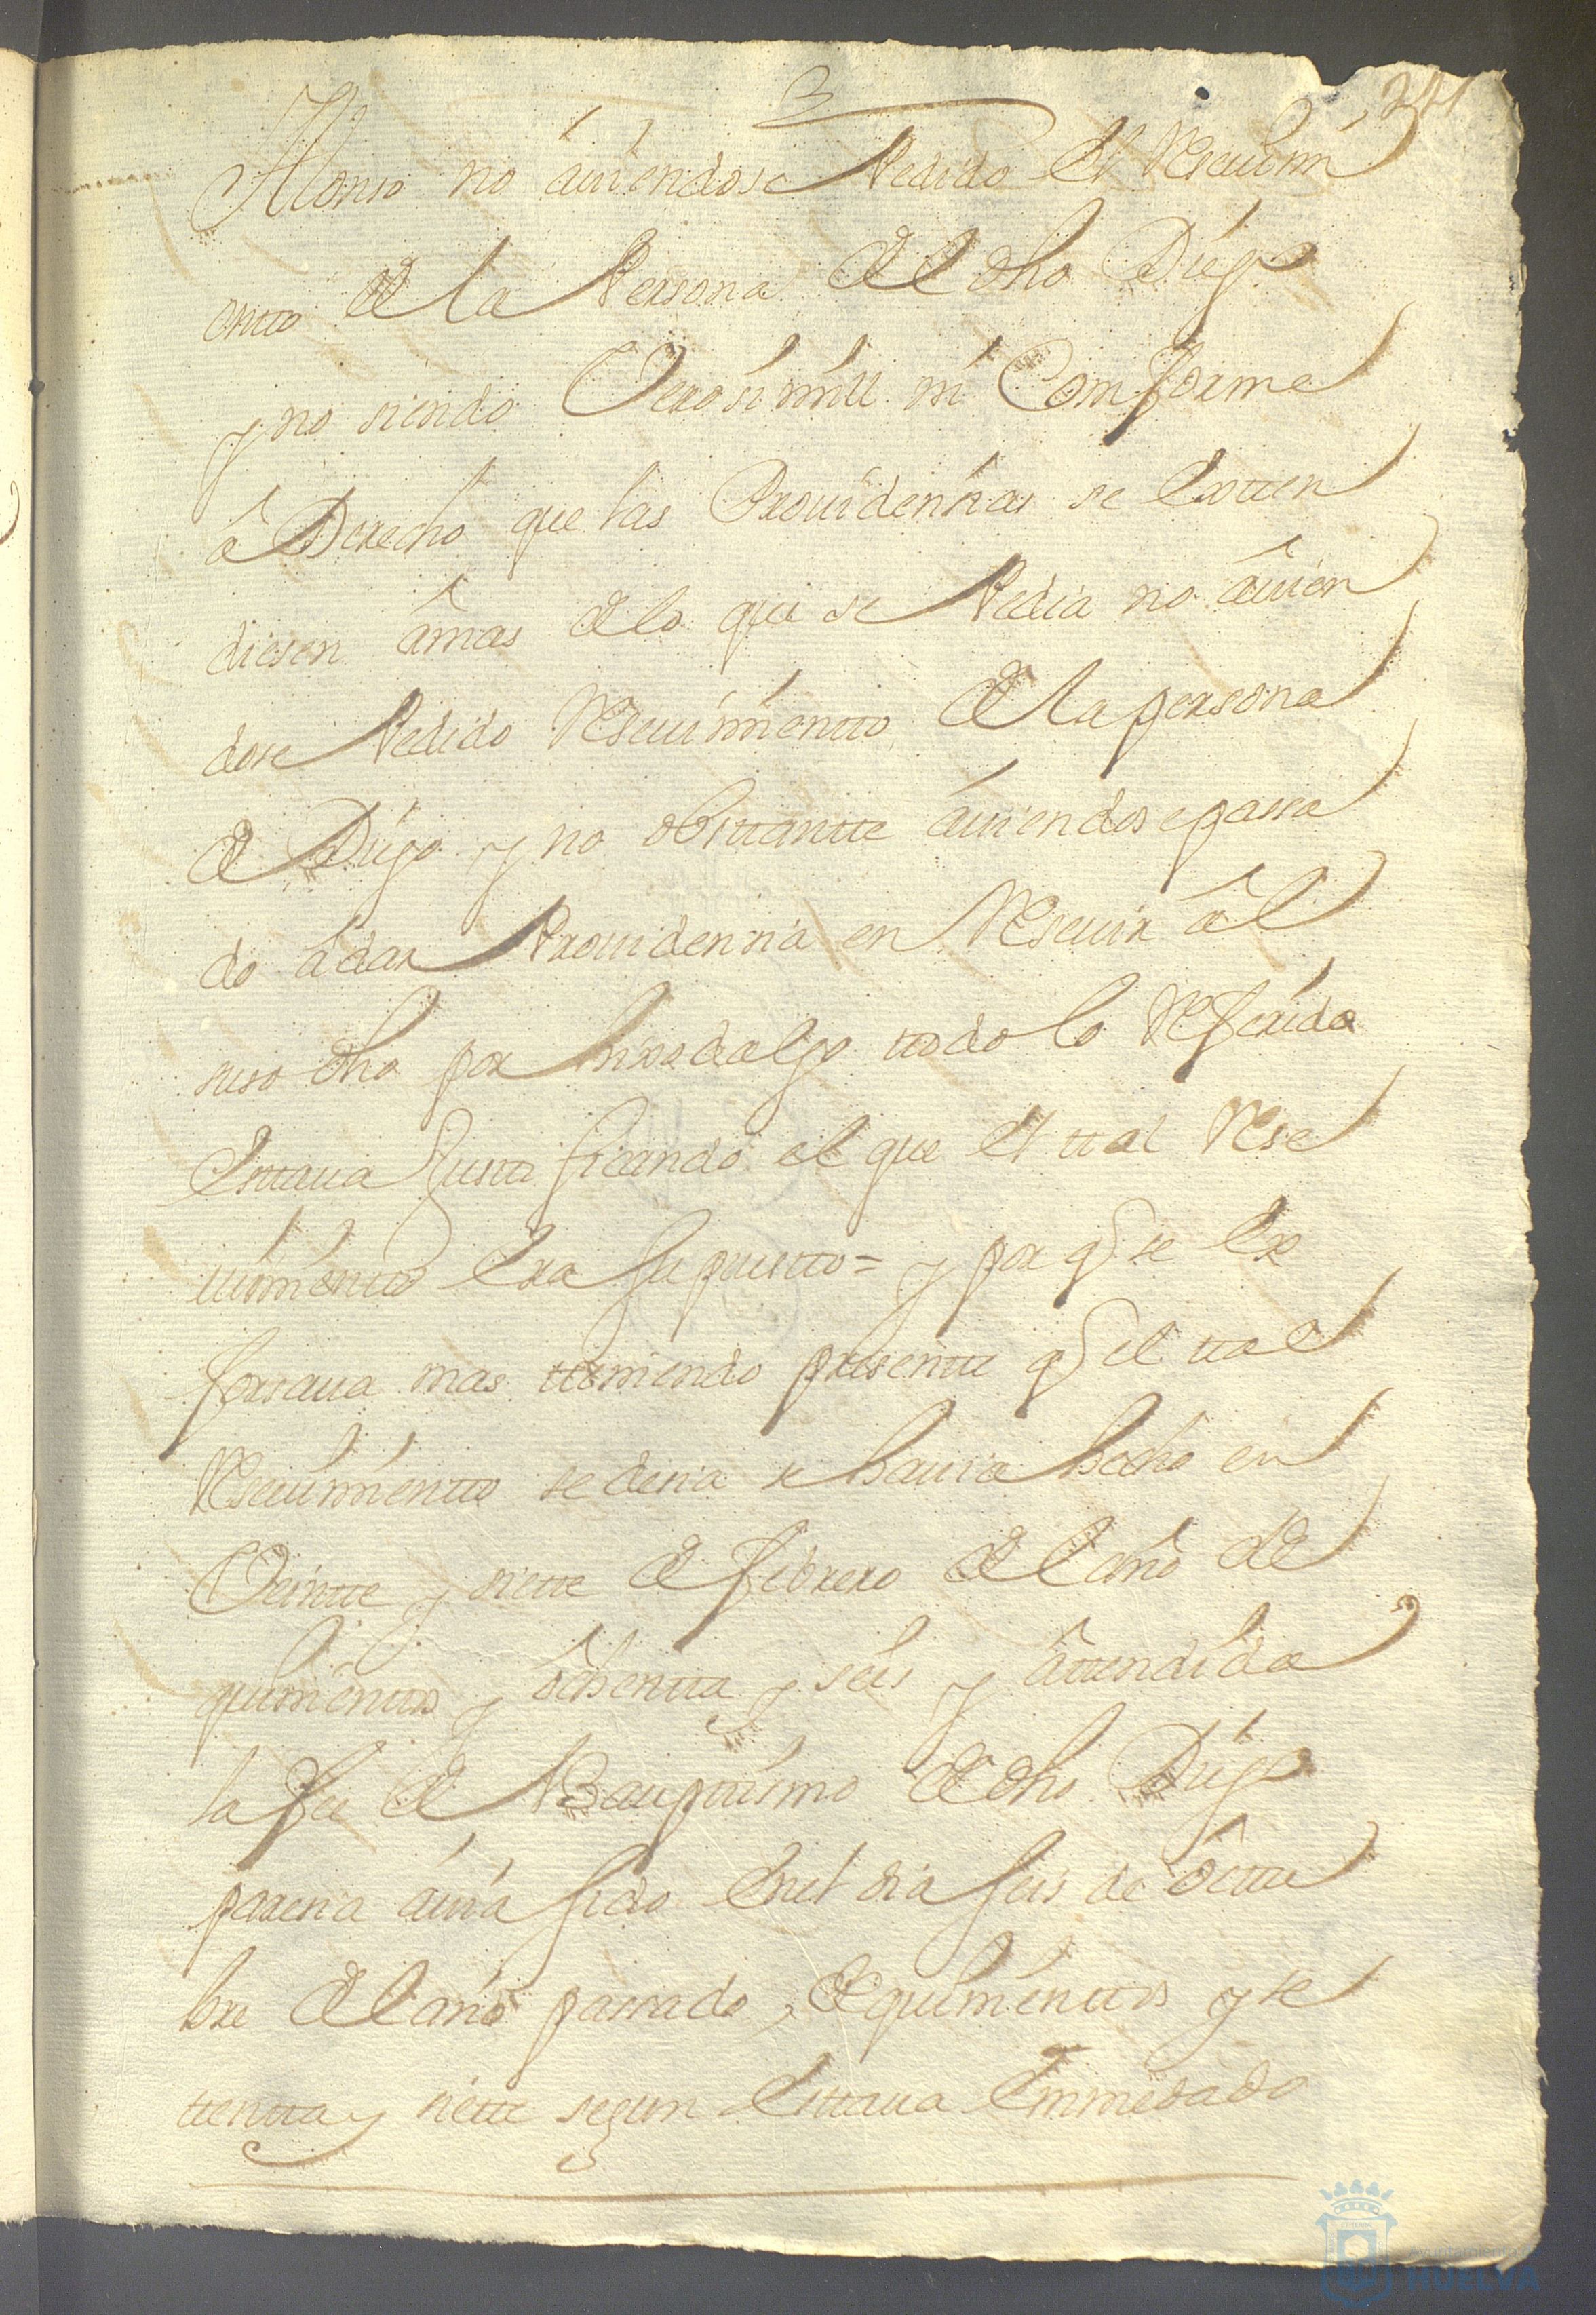 241
Alonso no auiendose Pedido el Reseuimi
entto de la Persona del dho Diego
y no siendo Verosimill ni Comforme
a Derecho que las Prouidencias se Extten
diesen a mas de lo que se Pedia no auien
dose Pedido Reseuimientto de la persona
de Diego y no obsttantte auiendose passa
do a dar Prouidencia en Reseuir al
suso dho por hixodalgo ttodo lo Referido
Esttaua Justtificando el que el ttal Rese
uimientto Era supuestto = y por q se Ex
forsaua mas tteniendo presentte q el ttal
Reseuimientto se desia se hauia hecho en
Veintte y siette de febrero del año de
quinienttos y ochentta y seis y attendida
la fee de Bauptismo de dho Diego
paresia auia sido En el dia seis de octtu
bre del año passado de quinienttos y se
ttentta y siette segun Esttaua Enmedado
Ayuntamiento
HUELVA